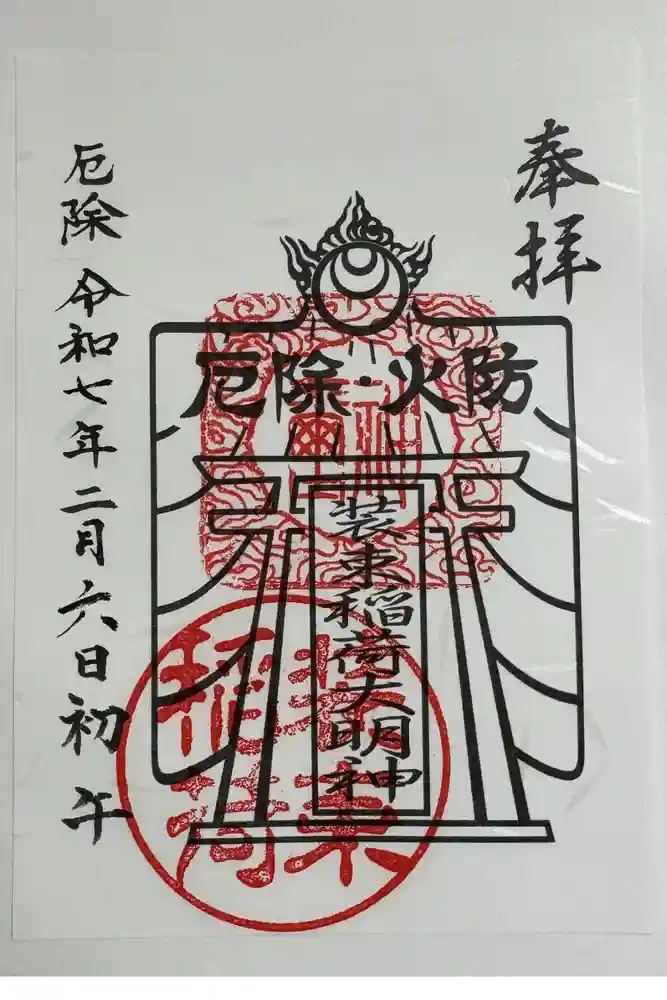 奉拝
厄除・火防
装束稲荷大明神
装束
稲荷
厄除 令和七年二月六日初午